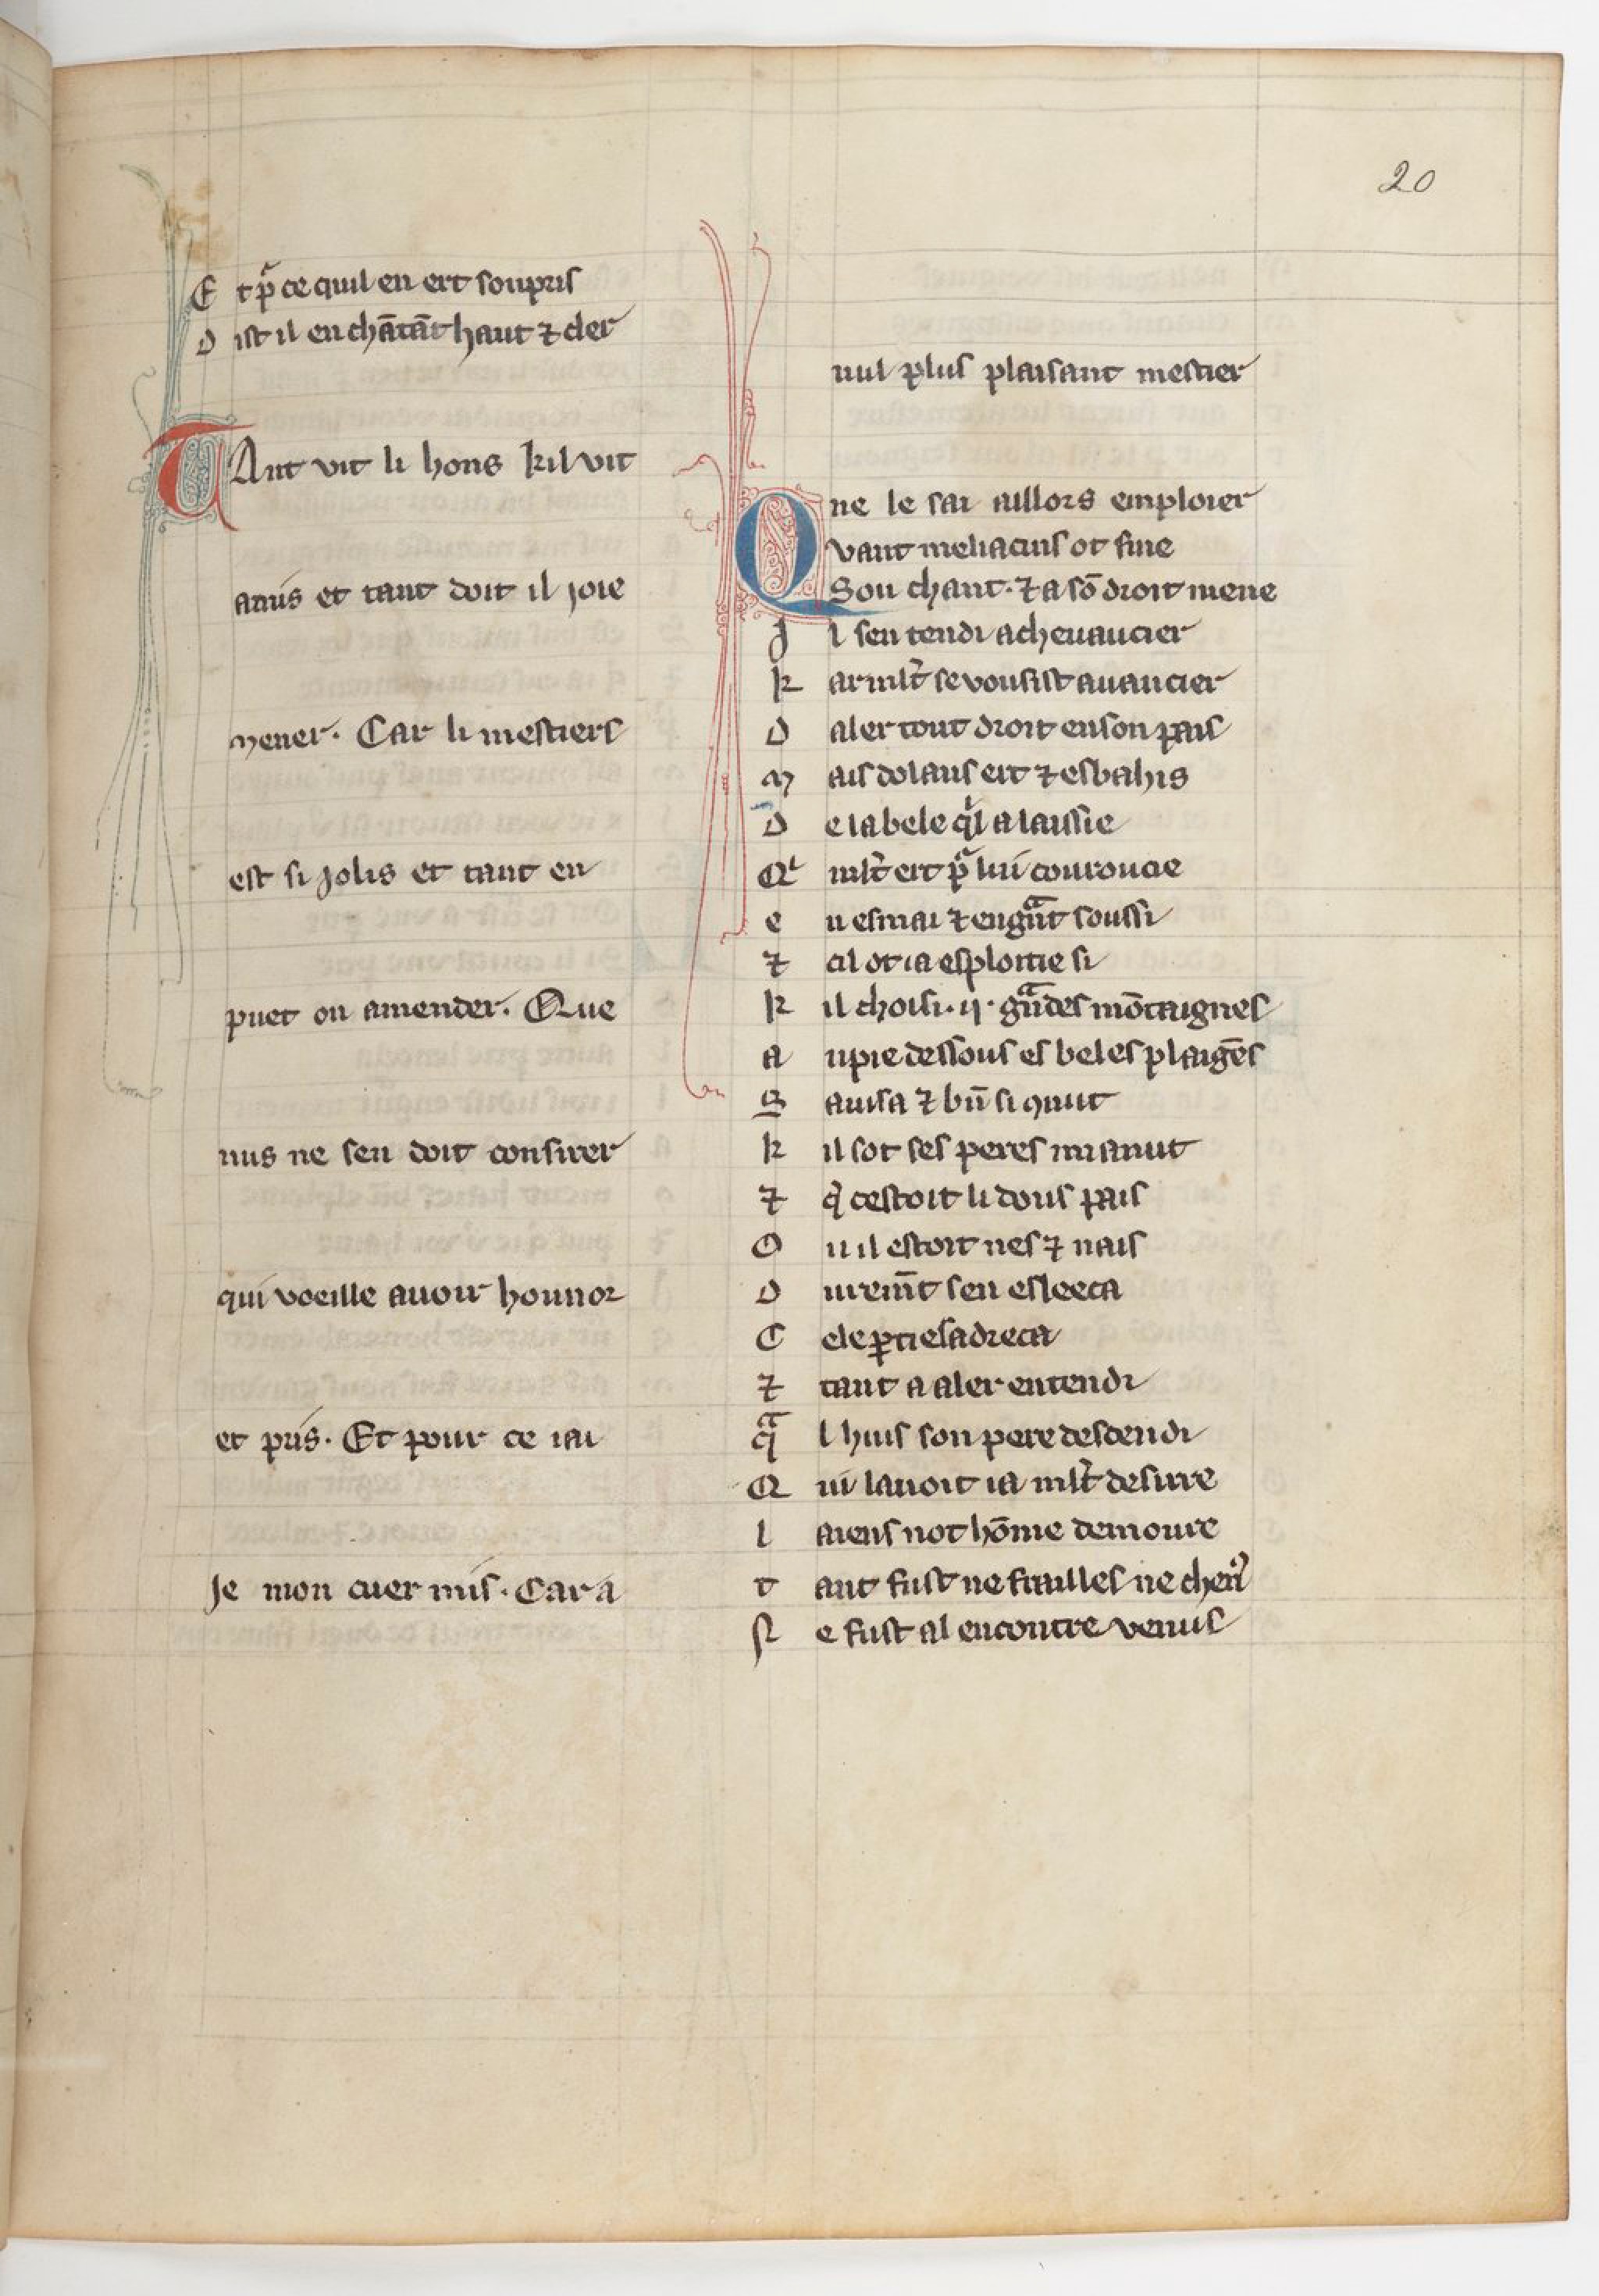 20
E t pͣ ce quil en ert soupris
D ist il en chātāt haut ⁊ cler
TAnt vit li hons kil vit
amis et tant doit il joie
mener. Car li mestiers
est si jolis et tant en
puet on amender. Que
nus ne sen doit consirer
qui voeille auoir honnor
et pris. Et pour ce iai
Je mon cuer mis. Car a
nul plus plaisant mestier
ne le sai aillors emploier
Qvant meliacins ot fine
Son chant. ⁊ a sō droit mene
J l sen tendi a cheuaucier
K ar mlt̓ se vousist auancier
D aler tout droit en son pais
M ais dolans ert ⁊ esbahis
D e la bele qͥl a laissie
Qͥ mlt̓ ert pͣ lui couroucie
E n esmai ⁊ en gͣnt soussi
⁊ cil ot ia esploitie si
K il choisi .ij. gͣndes mōtaignes
A u pie dessous es beles plaign̄es
G auisa ⁊ bn̄ si mut
K il sot ses peres mi anut
⁊ q̓ cestoit li dous pais
O u il estoit nes ⁊ nais
D urem̄t sen esleeca
C ele ꝑtie sadreca
⁊ tant a aler entendi
qͣ l huis son pere descendi
Q ui lauoit ia mlt̓ desirre
L aiens not hōme demoure
T ant fust ne frailles ne chenꝰ
S e fust al encontre venus